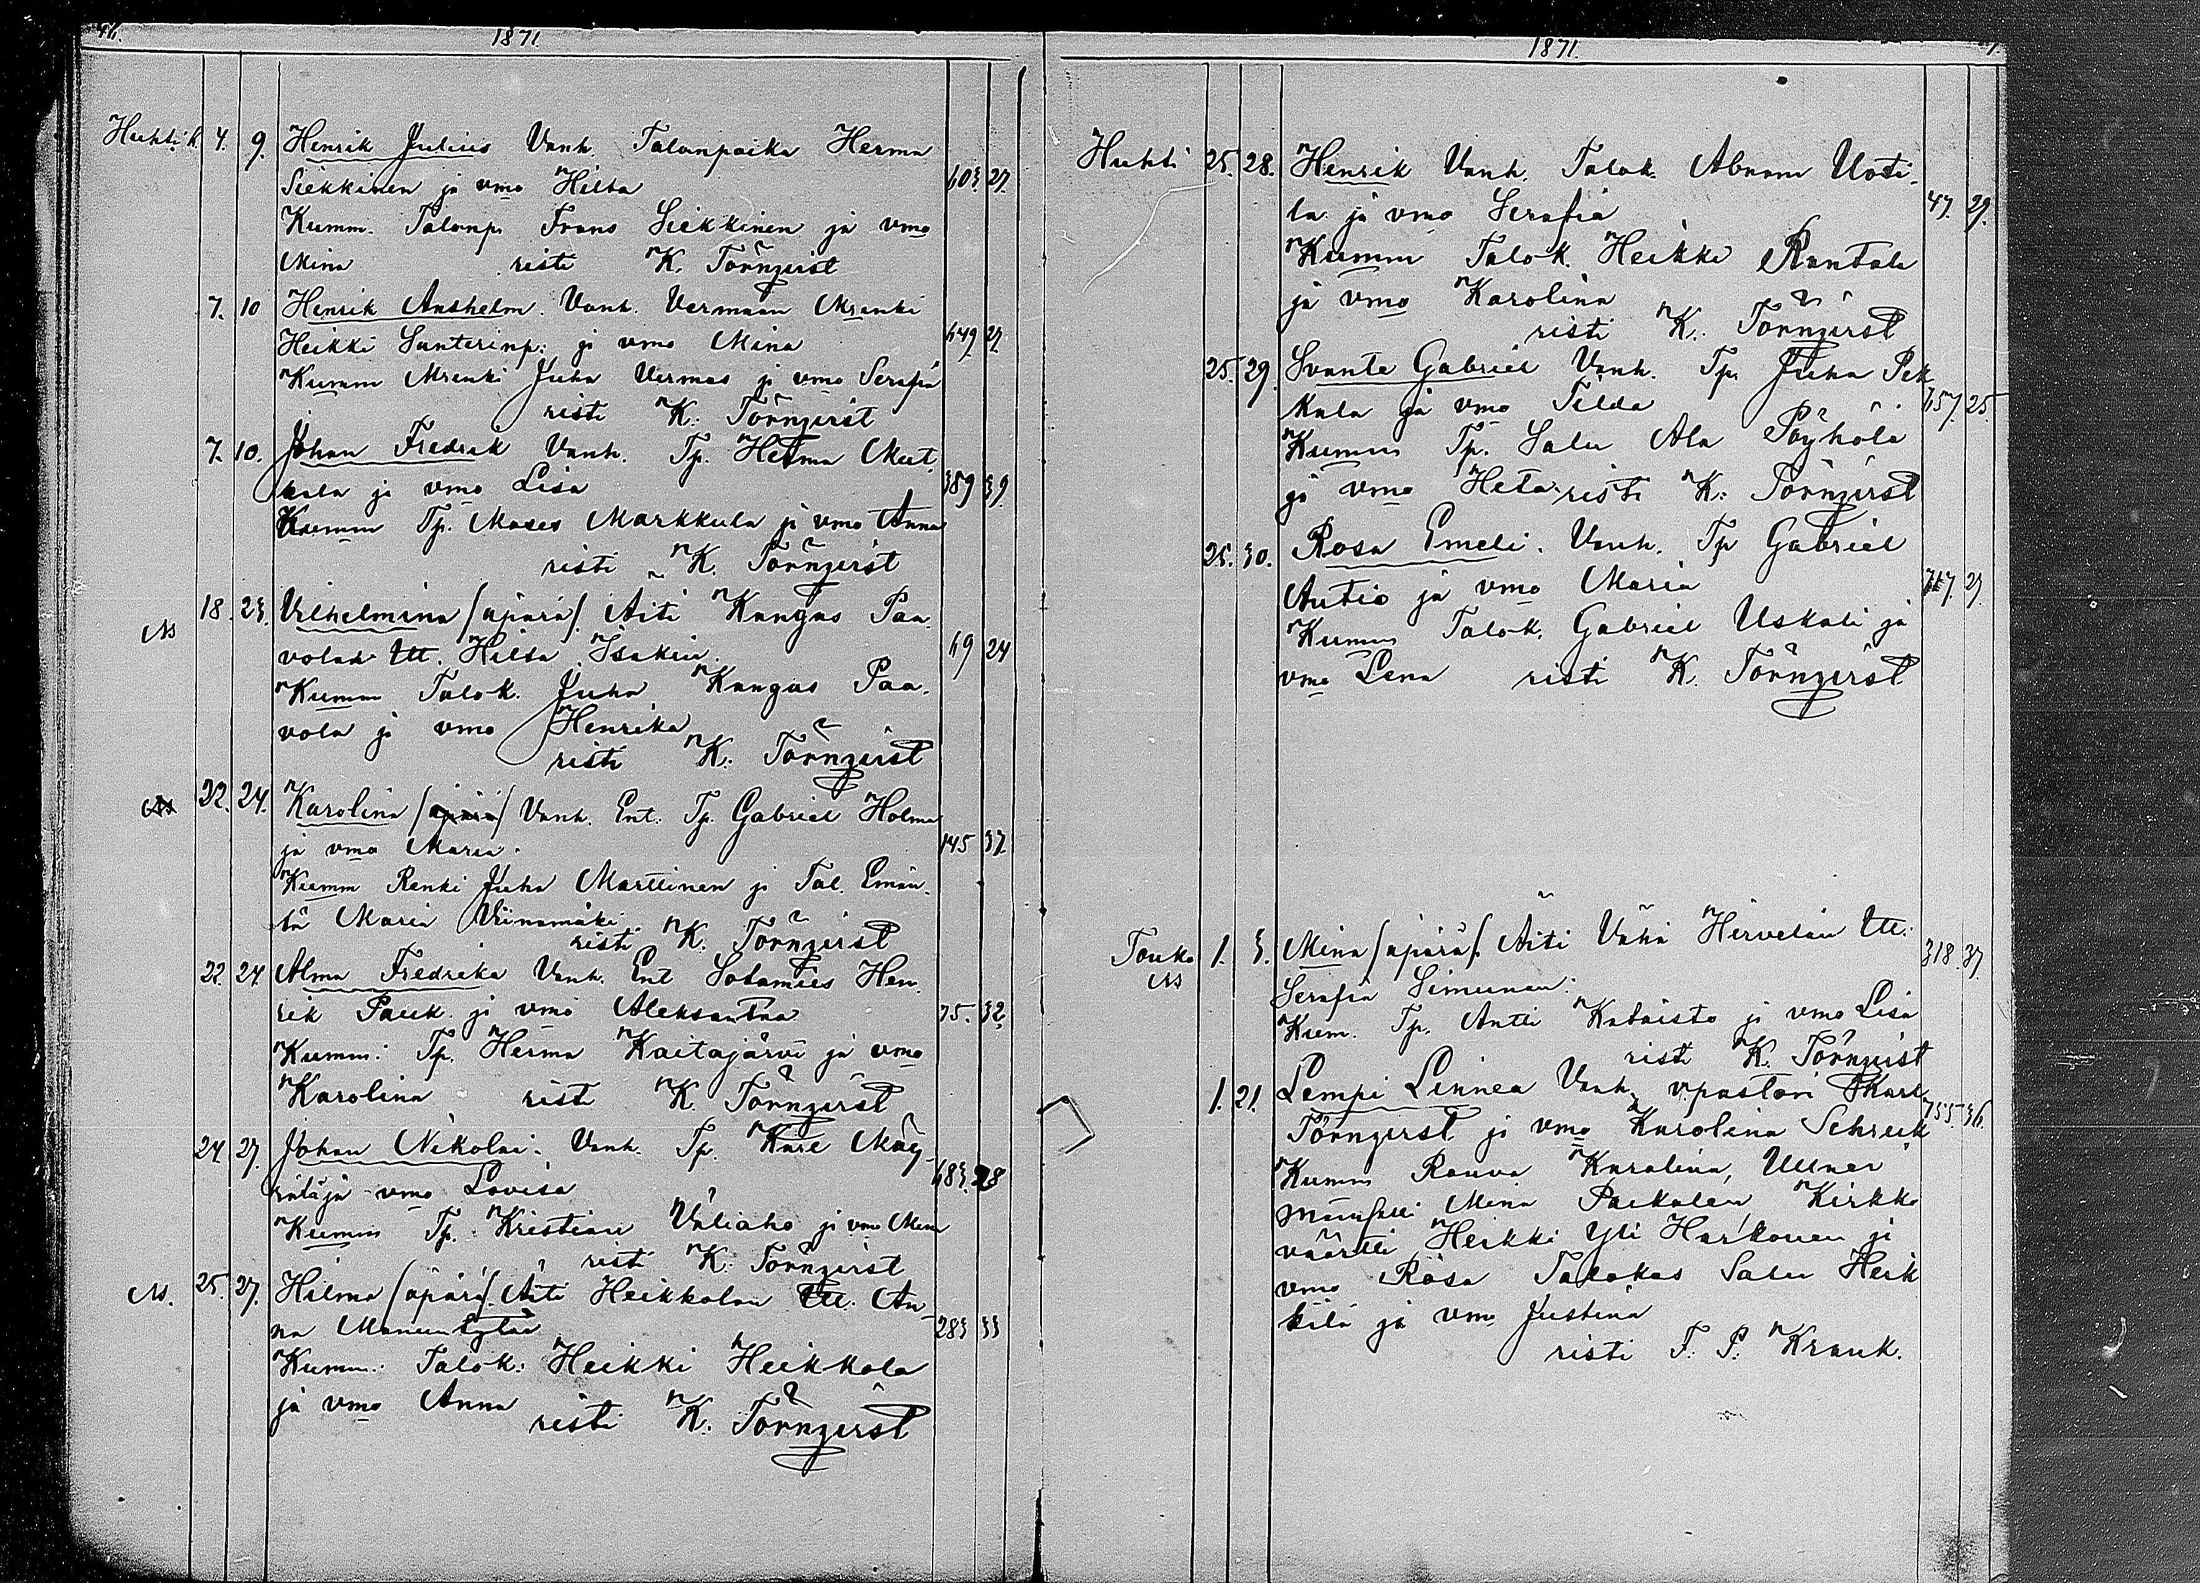 46.
1871.
Huhti k. 4. 9. Henrik Julius Vanh. Talonpoika Herma
Siekkinen ja vmo Hilta 603. 27.
Kumm. Talonp. Frans Siekkinen ja vmo
Mina risti K. Törnqvist
7. 10 Henrik Anshelm. Vanh. Vermaan Mrenki
Heikki Santerinp: ja vmo Mina 649. 27.
Kumm Mrenki Juha Vermas ja vmo Serafia
risti K. Törnqvist
7. 10. Johan Fredrik Vanh. Tp. Herma Mut
kala ja vmo Lisa 389 39.
Kumm Tp. Moses Markkula ja vmo Anna
risti K. Törnqvist
18. 23. Vilhelmina /äpärä/. Äiti Kangas Paa
volan Itt. Hilta Isakin 69 24
Kumm Talok. Juha Kangas Paa-
vola ja vmo Henrika
risti K. Törnqvist
22. 24. Karolina /äpärä/ Vanh. Ent. Tp. Gabriel Holma
ja vmo Maria. 145 37.
Kumm Renki Juha Marttinen ja Tal. Emän-
tä Maria Viinamäki
risti K. Törnqvist
22. 24. Alma Fredrika Vanh. Ent Sotamies Hen-
rik Pauk ja vmo Aleksantra 75. 32.
Kumm: Tp. Herma Kaitajärvi ja vmo
Karolina risti K. Törnqvist
24. 27. Johan Nikolai. Vanh. Tp. Kare Mäy-
rä ja vmo Lovisa 683. 28
Kumm Tp. Kristian Väliaho ja vmo Mina
risti K. Törnqvist
25. 27. Hilma /äpärä/. Äiti Heikkolan Itt. An-
na 283 33
Kumm: Talok: Heikki Heikkola
ja vmo Anna
risti K. Törnqvist
1871.
Huhti 25. 28. Henrik Vanh. Talok. Abram Uoti-
la ja vmo Serafia 47. 29.
Kumm Talok. Heikki Rantala
ja vmo Karolina
risti K. Törnqvist
25. 29. Svante Gabriel Vanh. Tp. Juha Pek
kala ja vmo Tilda 657. 25.
Kumm Tp. Salu Ala Pöyhölä
ja vmo Heta risti K: Törnqvist
25. 30. Rosa Emeli. Vanh. Tp Gabriel
Autio ja vmo Maria 717. 27.
Kumm Talok. Gabriel Uskali ja
vmo Lena risti K. Törnqvist
Touko 1. 3. Mina /äpärä/. Äiti Vähä Hirvelän Itt.
Serafia Simunan. 318. 37.
Kum. Tp. Antti Kataisto ja vmo Lisa
risti K. Törnqvist
1. 21. Lempi Linnea Vanh. v.pastori Karl
Törnqvist ja vmo Karolina Schreik 755 36.
Kumm Rouva Karolina Ullner
mamselli Mina Kirkko
väärtti Heikki Yli Harkonen ja
vmo Rosa Talokas Salu Heik
kilä ja vmo Justina
risti F. P. Krank.